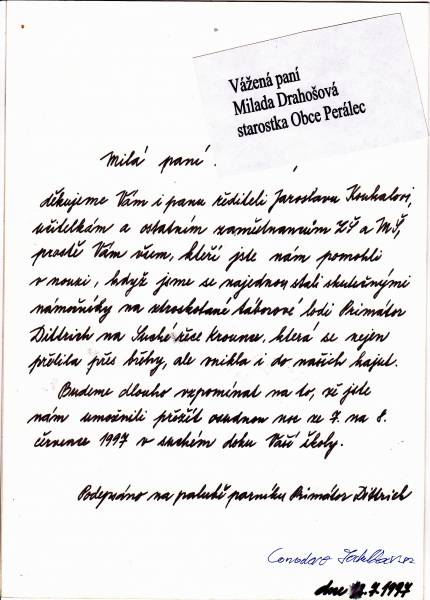 Vážená paní
Milada Drahošová
starostka Obce Perálec
Milá paní.
děkujeme Vám i panu řediteli Jaroslavu Kouhalovi,
učitelkám a ostatním zaměstnancům ZŠ a MŠ,
prostě Vám všem, kteří jste nám pomohli
v nouzi, když jsme se najednou stali skutečnými
námořníky na ztroskotané táborové lodi Primátor
Dittrich na Suché řece Krounce, která se nejen
přelila přes břehy, ale vnikla i do našich kajut.
Budeme dlouho vzpomínat na to, že jste
nám umožnili přežít osudnou noc ze 7. na 8.
července 1997 v suchém doku Vaší školy.
Podepsáno na palubě parníku Primátor Dittrich
dne 12.7.1997